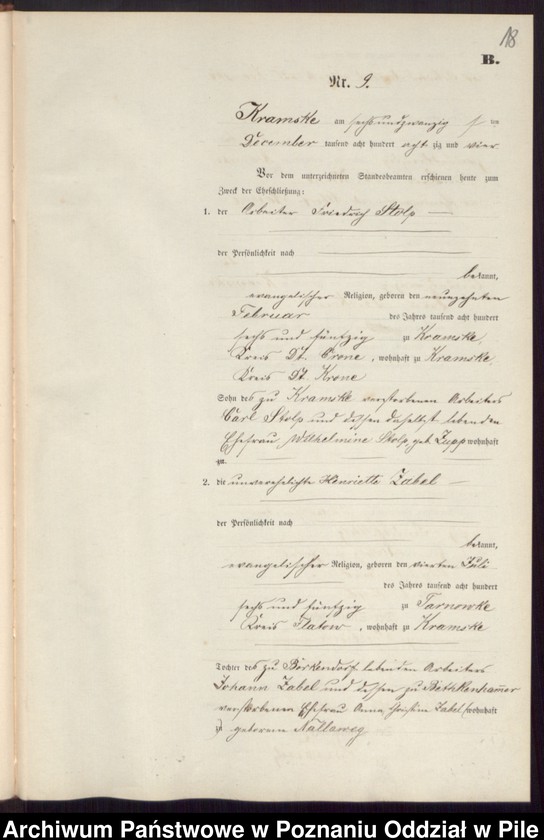 18
B.
Nr. 9.
Kramske am sechsundzwanzig ten
December tausend acht hundert acht zig und vier
Vor dem unterzeichneten Standesbeamten erschienen heute zum
Zweck der Eheschließung:
1. der Arbeiter Friedrich Stolp
der Persönlichkeit nach
bekannt,
evangelischer Religion, geboren den neunzehnten
Februar des Jahres tausend acht hundert
sechs und fünfzig zu Kramske,
Kreis Dt. Crone, wohnhaft zu Kramske
Kreis Dt. Krone
Sohn des zu Kramske verstorbenen Arbeiters
Carl Stolp und dessen daselbst lebenden
Ehefrau Wilhelmine Stolp geb. Zupp wohnhaft
zu
2. die unverehelichte Henriette Zabel
der Persönlichkeit nach
bekannt,
evangelischer Religion, geboren den vierten Juli
des Jahres tausend acht hundert
sechs und fünfzig zu Tarnowke
Kreis Flatow, wohnhaft zu Kramske
Tochter des zu Borkendorf lebenden Arbeiters
Johann Zabel und dessen zu Bethkenhammer
verstorbenen Ehefrau Anna Zabel wohnhaft
zu geborene
Archiwum Państwowe w Poznaniu Oddział w Pile